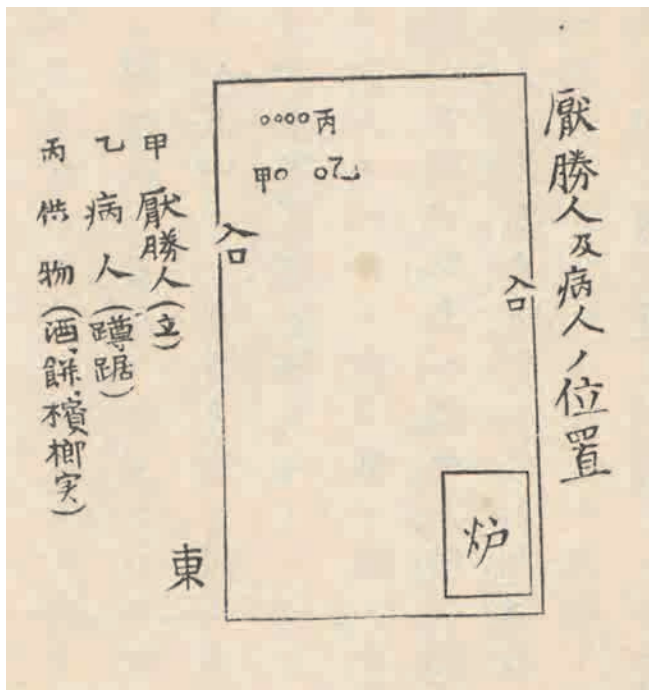 厭勝人及病人ノ位置
丙
甲 乙
入口
入口
炉
東
甲 厭勝人(立)
乙 病人(蹲踞)
丙 供物(酒、餅、檳榔実)